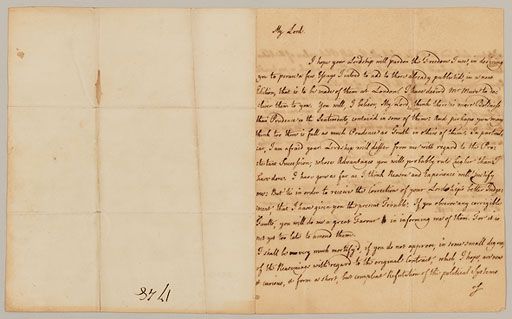 My Lord
I hope your Lordship will pardon the Freedom I use in desiring
you to peruse a few Essays I intend to add to those already publish'd, in a new
Edition, that is to be made of them at London. I have desired Mr Mure to de-
liver them to you. You will, I believe, My Lord, think there is more Boldness
than Prudence in the Sentiments, contain'd in some of them: And perhaps you may
think too there is full as much Prudence as Truth in others of them. In particu-
lar, I am afraid your Lordship will differ from me with regard to the Pro-
testant Succession; whose Advantages you will probably rate higher than I
have done. I have gone as far as I think Reason and Experience will justify
me: But tis in order to receive the Correction of your Lordships better Judge-
ment that I have given you the present Trouble. If you observe any corrigible
Faults, you will do me a great Favour in informing me of them. For it is
not yet too late to amend them.
I shall be very much mortify'd, if you do not approve, in some small degree,
of the Reasonings with regard to the original Contract, which, I hope, are new
& curious, & form a short, but compleat Refutation of the political Systems
of
1748